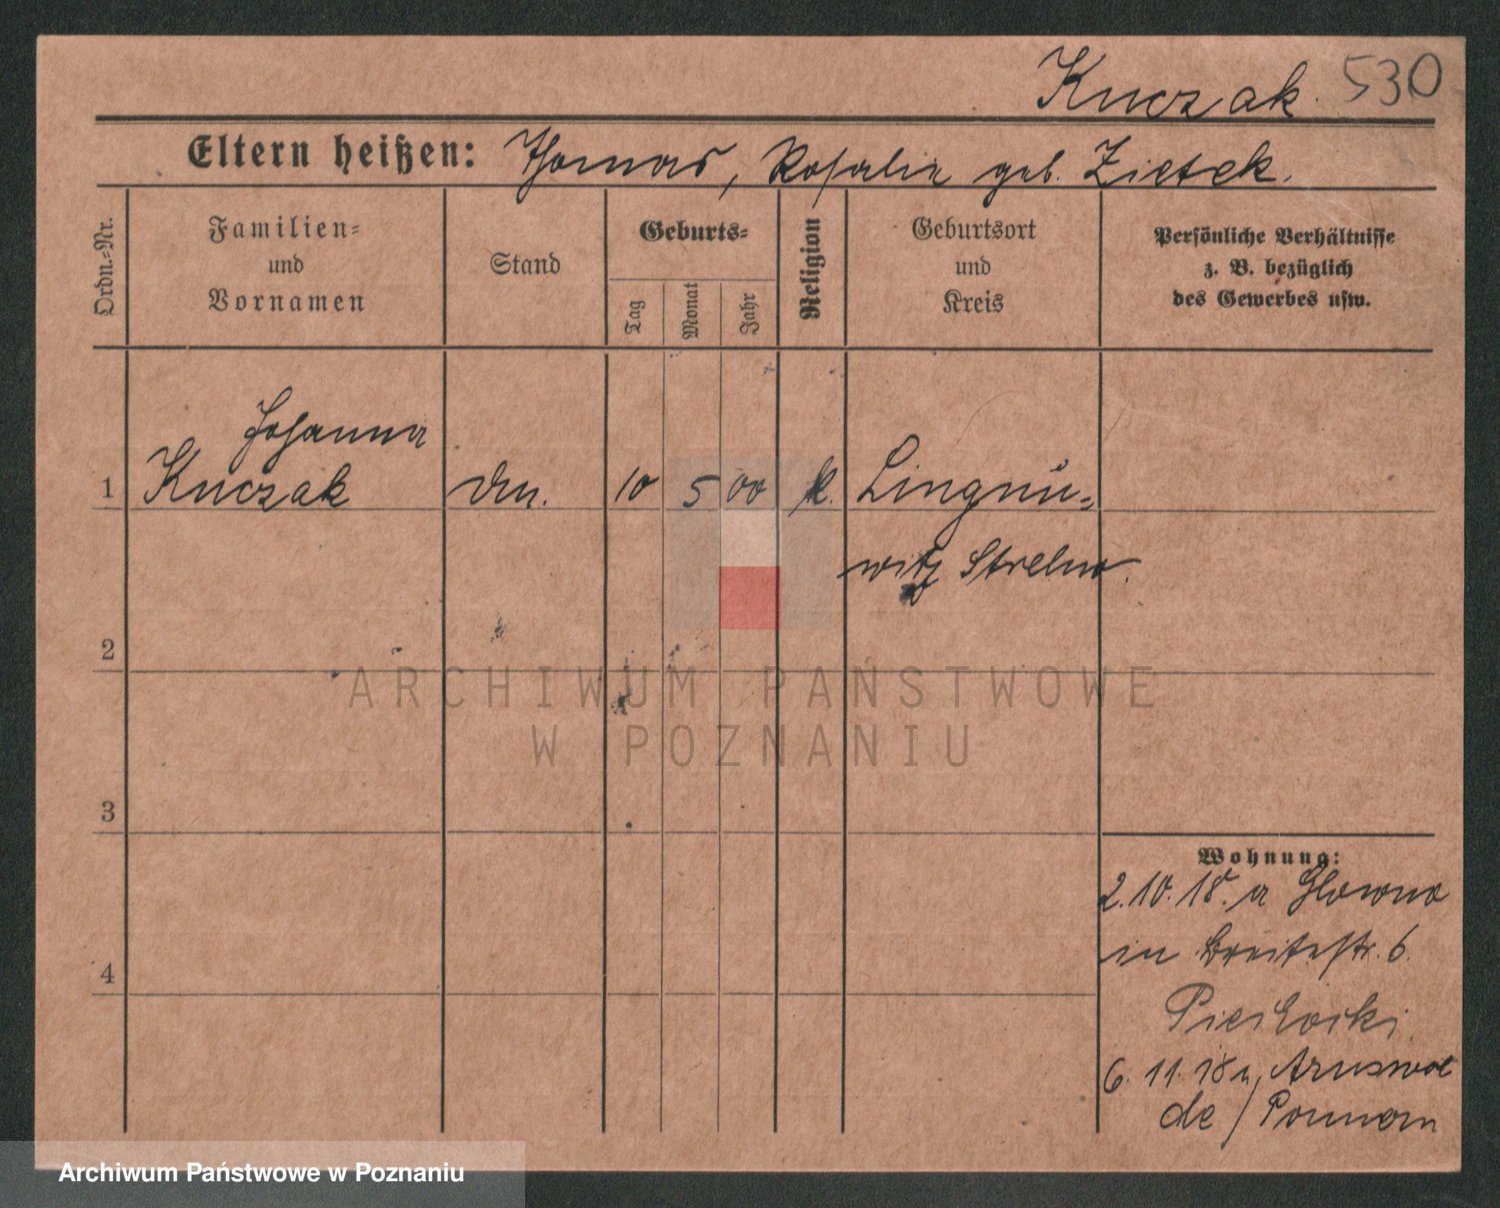 Kuczak. 530
Eltern heißen: Thomas, Rosalie geb. Zietek.
Ordn.=Nr.
Familien=
und
Vornamen
Stand
Geburts=
Tag
Monat
Jahr
Religion
Geburtsort
und
Kreis
Persönliche Verhältnisse
z. B. bezüglich
des Gewerbes usw.
Johanna
1 Kuczak 10 5 00 k.
witz Strelno.
2
3
4
Wohnung:
2.10.18. a Glowno
in Breitestr. 6.
6. 11. 18 n, Arnswal
de / Pommern
ARCHIWUM PAŃSTWOWE
W POZNANIU
Archiwum Państwowe w Poznaniu